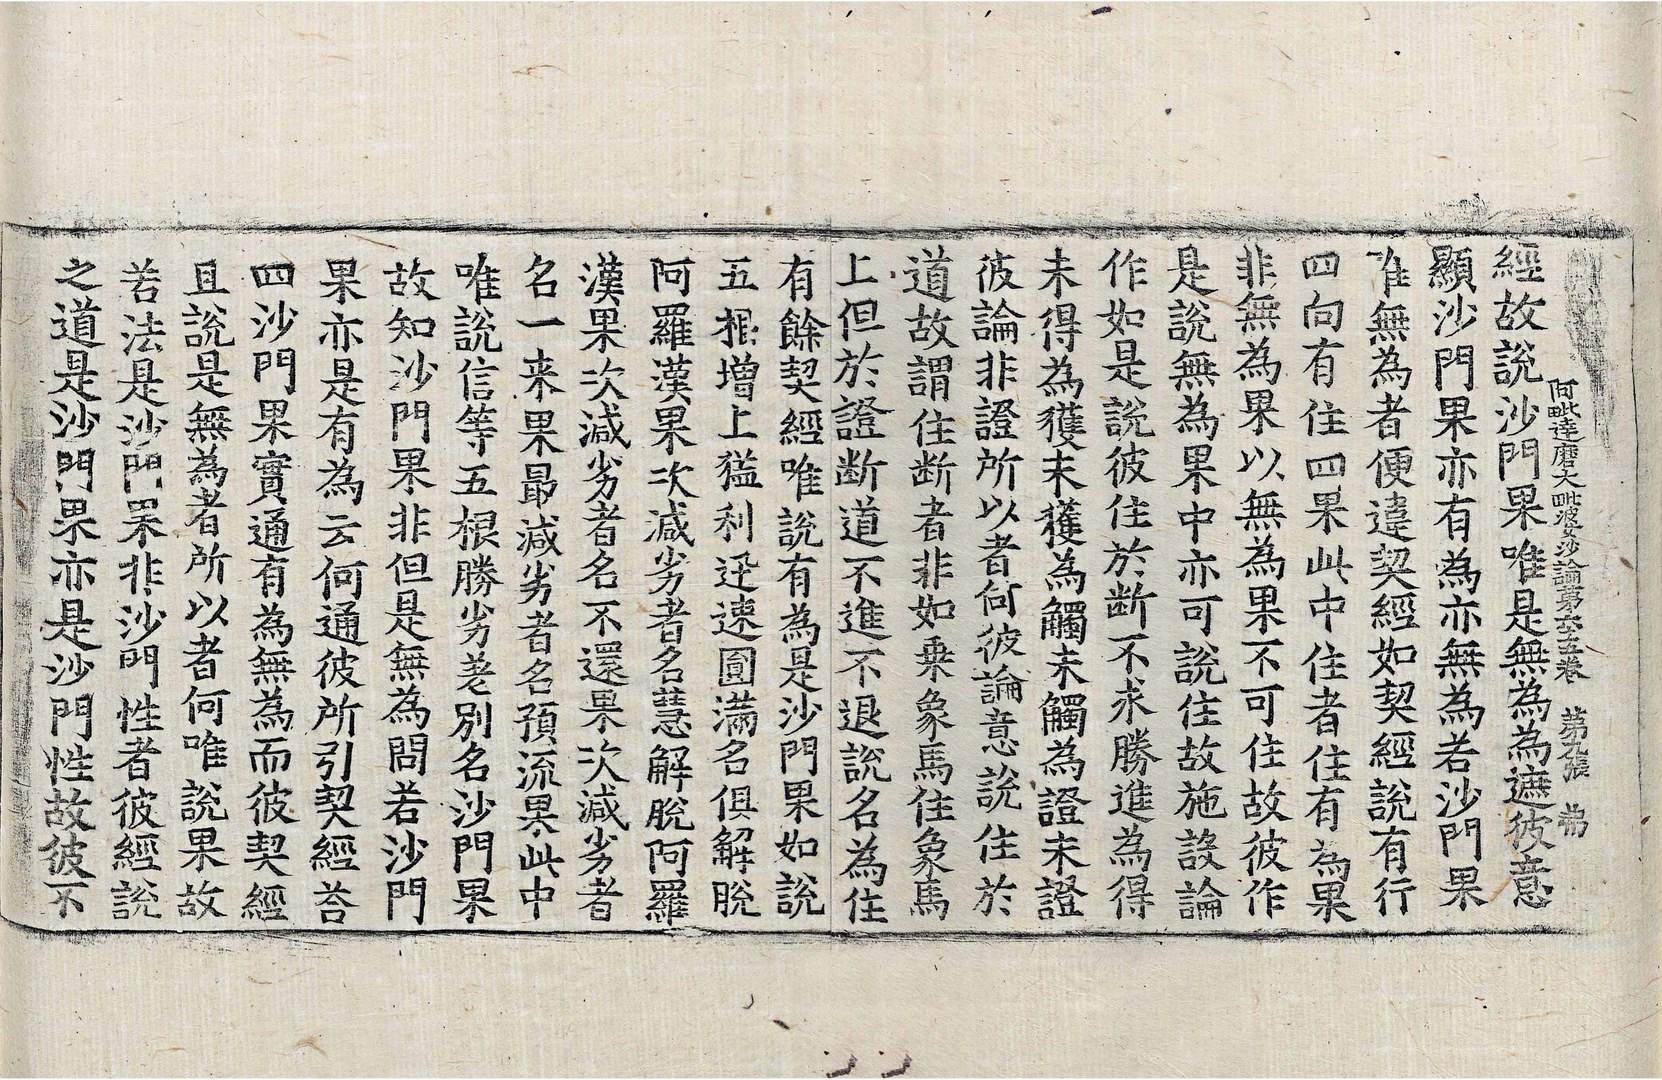 阿毗達磨大毗婆沙論第六十五卷 第九張 弗
經故說沙門果唯是無為為遮彼意
顯沙門果亦有為亦無為若沙門果
唯無為者便違契經如契經說有行
四向有住四果此中住者住有為果
非無為果以無為果不可住故彼作
是說無為果中亦可說住故施設論
作如是說彼住於断不求勝進為得
未得為獲未獲為觸未觸為證未證
彼論非證所以者何彼論意說住於
道故謂住断者非如乗象馬住象馬
上但於證断道不進不退說名為住
有餘契經唯說有為是沙門果如說
五根增上猛利迅速圓滿名俱解脫
阿羅漢果次減劣者名慧解脫阿羅
漢果次減劣者名不還果次減劣者
名一来果最減劣者名預流果此中
唯說信等五根勝劣差別名沙門果
故知沙門果非但是無為問若沙門
果亦是有為云何通彼所引契經荅
四沙門果實通有為無為而彼契經
且說是無為者所以者何唯說果故
若法是沙門果非沙門性者彼經說
之道是沙門果亦是沙門性故彼不